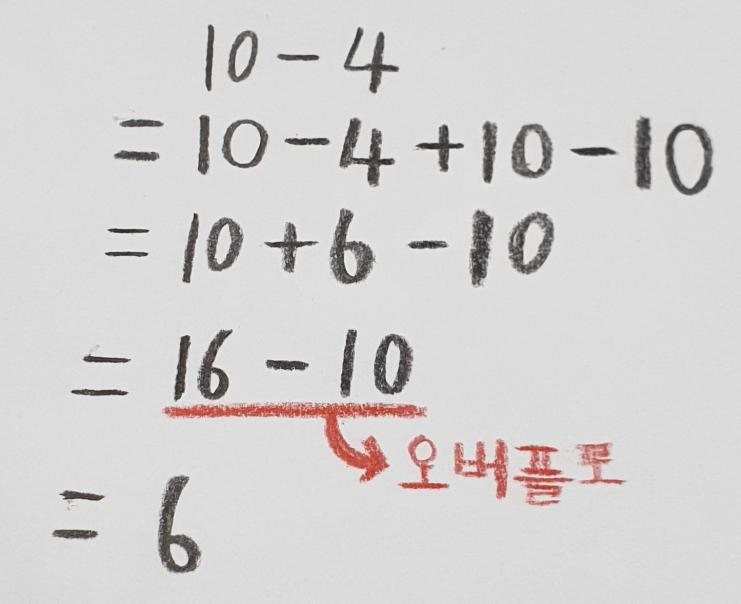 10-4
=10-4+10-10
=10+6-10
=16-10
오버플로
=6